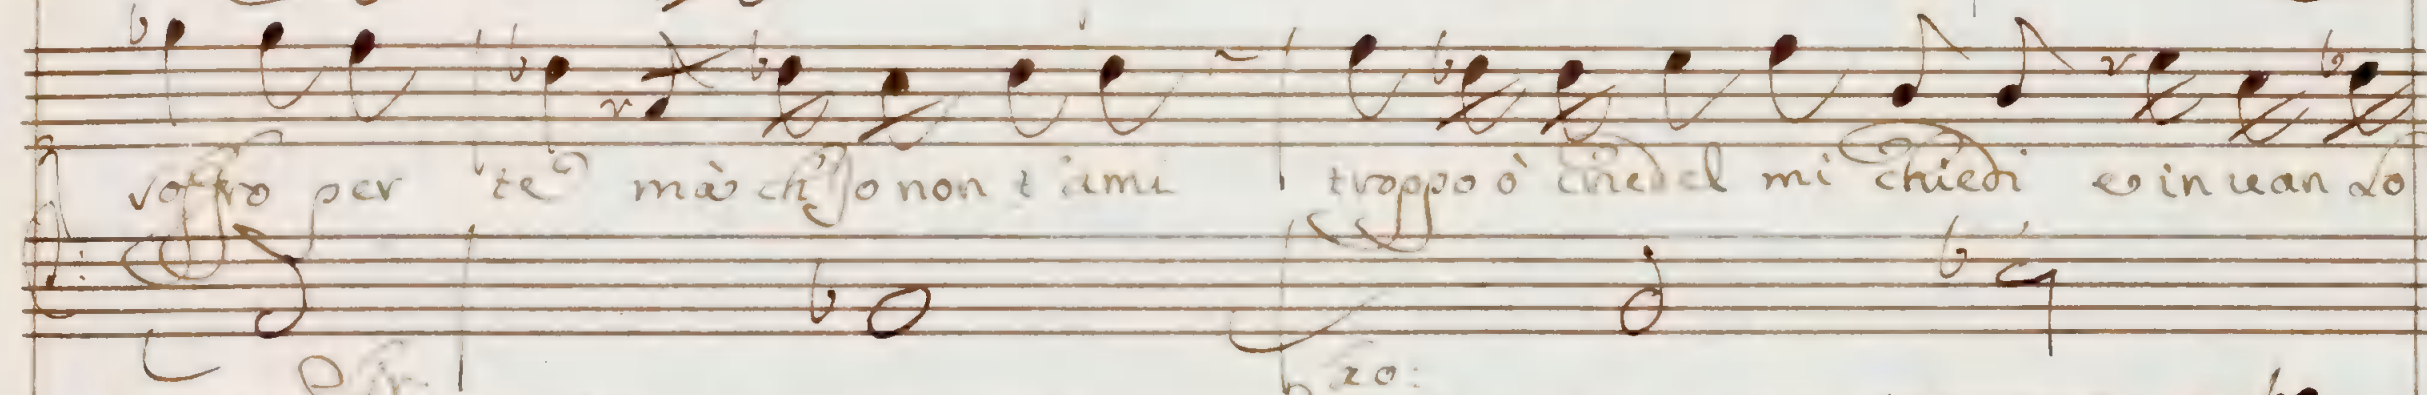 soffro per te mà ch'Io non t'ami troppo ò ciel mi chiedi e in uan lo